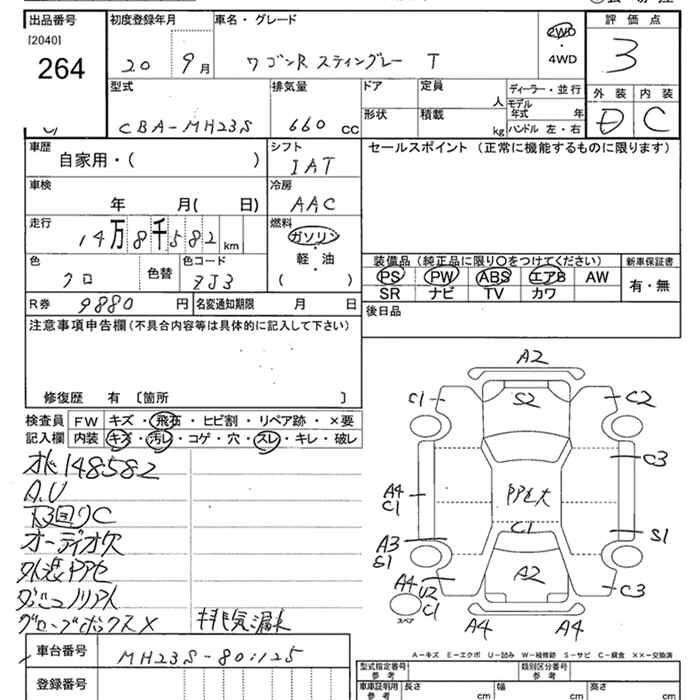 出品番号 初度登録年月 車名・グレード 2WD ・ 4WD 評価点
[2040]
264 20 9月 ワゴンR スティングレー T 3
型式 排気量 ドア 定員 人 ディーラー・並行 外装 内装
CBA-MH23S 660 cc 形状 積載 kg モデル年式 年 ハンドル 左・右 D C
車歴 自家用・( ) シフト IAT セールスポイント (正常に機能するものに限ります)
車検 年 月( 日) 冷房 AAC
走行 14万8千582 km 燃料 ガソリン ・ 軽・油 ( )
装備品(純正品に限り〇をつけてください) 新車保証書
色 クロ 色替 色コード ZJ3 PS PW ABS エアB AW 有・無
SR ナビ TV カワ
R券 9880 円 名変通知期限 月 日 後日品
注意事項申告欄(不具合内容等は具体的に記入して下さい)
修復歴 有 〔箇所 〕
検査員記入欄 FW キズ・飛石・ヒビ割・リペア跡・×要
内装 キズ・汚レ・コゲ・穴・スレ・キレ・破レ
148582
A.U
下回りC
オーディオ欠
外装PPセ
グローブボックスX 排気漏れ
A2
C1 S2 C2
C3
A4 C1 PP大
C1 S1
A3 S1
A4 U2 C1 A2 C3
スペア
A4 A4
A-キズ E-エクボ U-凹み W-補修跡 S-サビ C-腐食 XX-交換済
車台番号 MH23S-801125 型式指定番号 参考 類別区分番号 参考
登録番号 車車証明用 参考 長さ cm 幅 cm 高さ cm